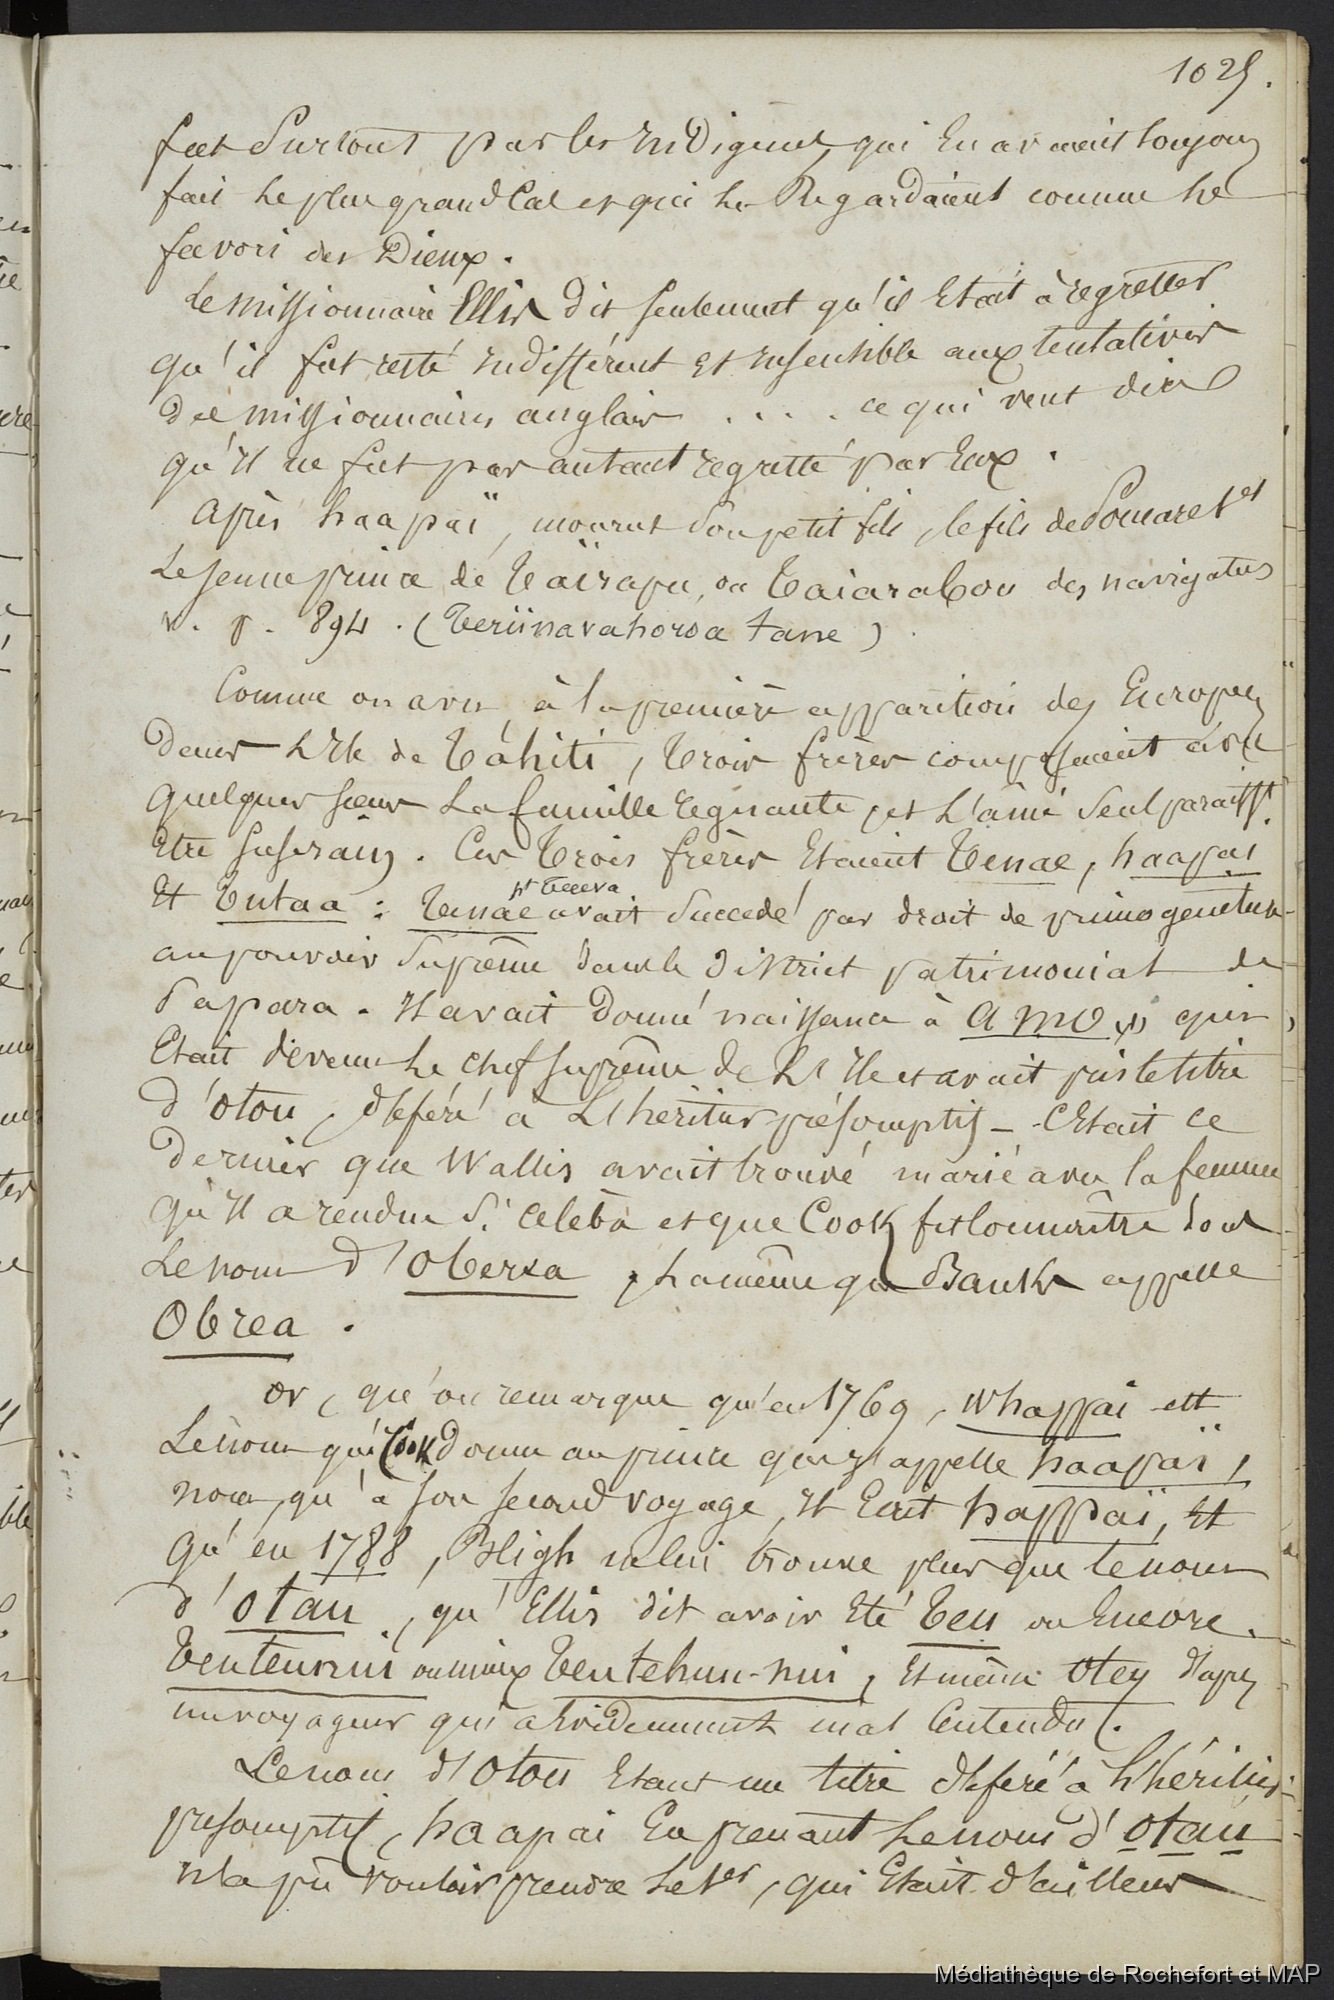 1025.
fut surtout par les Indigènes, qui en avaient toujours
fait le plus grand cas et qui le Regardaient comme le
favori des Dieux.
Le missionnaire Ellis dit seulement qu'il était à regretter
qu'il fut resté indifférent et insensible aux tentatives
des missionnaires anglais . . . . ce qui veut dire
qu'il ne fut pas autant regretté par Eux.
Après haapaï, mourut son petit fils, le fils de Pomare 1er
Le jeune prince de Taïrapu, ou Taiarabou des navigateurs
v. p. 894. (Teriinavahoroa tane)
Comme on a vu, à la première apparition des Européens
dans L'Ile de Tahiti, trois frères composaient avec
quelques sœurs La famille régnante, et L'aîné seul paraisst
Etre suserain. Ces trois frères Etaient Tenae, haapai
Et Tutaa : Tenae avait succédé par droit de primogeniture
au pouvoir suprême dans le district patrimonial de
Papara. Il avait donné naissance à Amo (1) qui
Etait devenu Le chef suprême de L'Ile et avait pris le titre
d'otou, déféré à L'héritier présomptif - C'Etait ce
dernier que Wallis avait trouvé marié avec la femme
qu'Il a rendue si célèbre et que Cook fit connaître sous
Le nom d'Oberea, La même que Banks appelle
Obrea.
Or, qu'on remarque qu'en 1769, Whappai est
Le nom que Cook donne au prince qui s'appelle haapaï,
nom, qu'à son second voyage, Il Ecrit happaï, Et
qu'en 1788, Bligh ne lui trouve plus que le nom
d'otau, qu'Ellis dit avoir Eté Teu ou Encore
Teuteunui ou mieux Teutehua-nui, Et même Otey d'après
un voyageur qui a Evidemment mal Entendu.
Le nom d'Otou Etant un titre déféré à L'héritier
présomptif, haapai En prenant Le nom d'otau
n'a pu vouloir prendre Le 1er, qui Etait d'ailleurs
Médiathèque de Rochefort et MAP